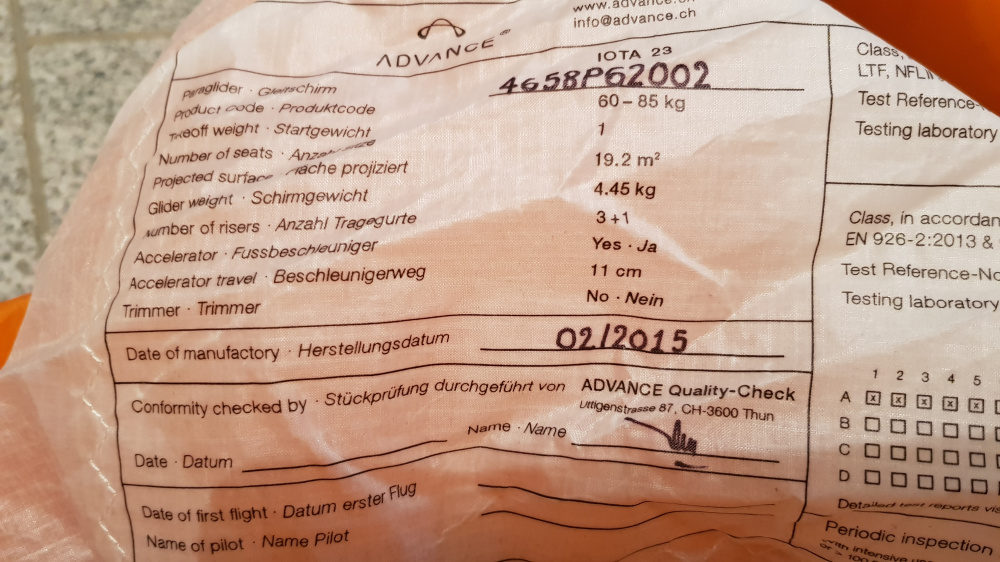 www.advance.ch
info@advance.ch
ADVANCE®
Paraglider · Gleitschirm IOTA 23
Product code · Produktcode 4658P62002
Takeoff weight · Startgewicht 60 – 85 kg
Number of seats · 1
Projected surface projiziert 19.2 m²
Glider weight · Schirmgewicht 4.45 kg
Number of risers · Anzahl Tragegurte 3 +1
Accelerator · Fussbeschleuniger Yes · Ja
Accelerator travel · Beschleunigerweg 11 cm
Trimmer · Trimmer No · Nein
Date of manufactory · Herstellungsdatum 02/2015
Conformity checked by · Stückprüfung durchgeführt von ADVANCE Quality-Check
Uttigenstrasse 87, CH-3600 Thun
Name · Name
Date · Datum
Date of first flight · Datum erster Flug
Name of pilot · Name Pilot
Class,
LTF,
Test Reference-
Testing laboratory
Class, in
EN 926-2:2013 &
Test Reference-No
Testing laboratory
1 2 3 4 5
A x x x x x
B
C
D
Detailed test reports
Periodic inspection